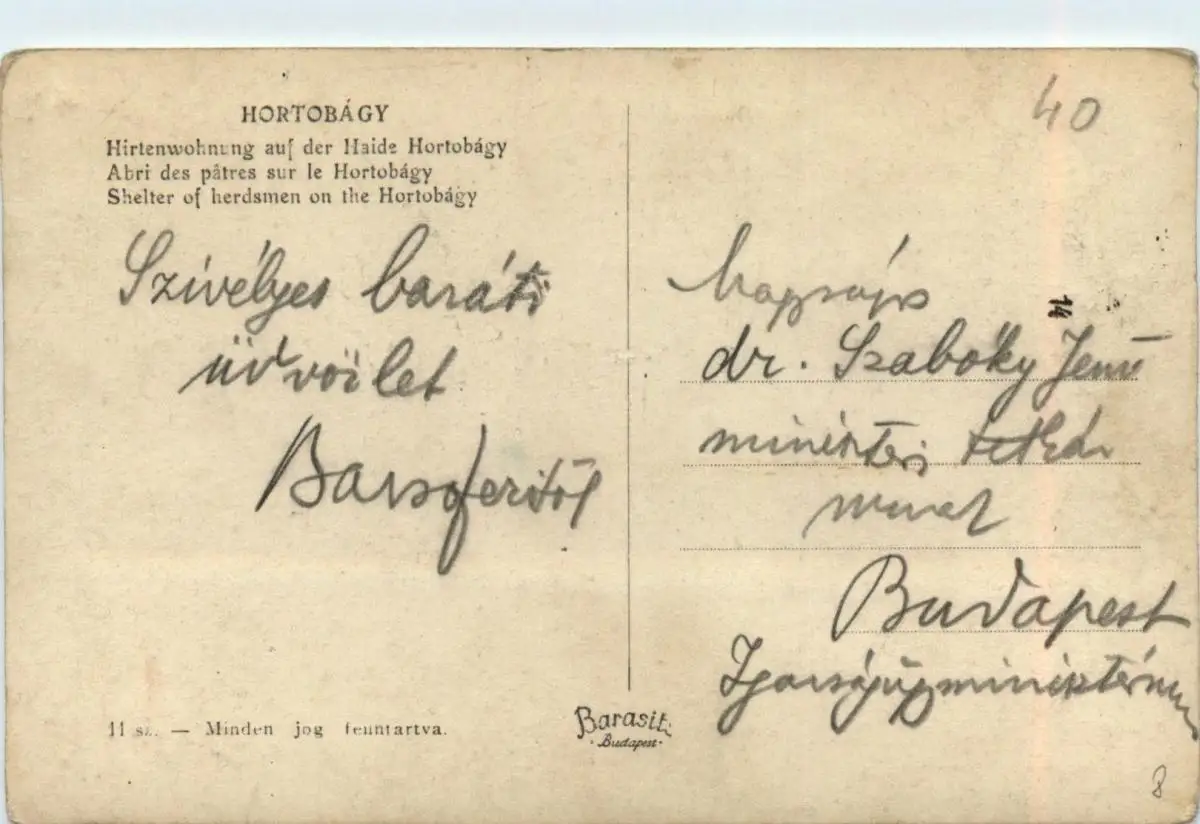 HORTOBÁGY
Hirtenwohnung auf der Haide Hortobágy
Abri des pâtres sur le Hortobágy
Shelter of herdsmen on the Hortobágy
Szivélyes baráti
üdvözlet
11 sz. — Minden jog fenntartva.
Barasits
Budapest
40
14
dr. Szabóky Jenő
miniszteri titkár
urnak
Budapest
Igazságügyminisztérium
8